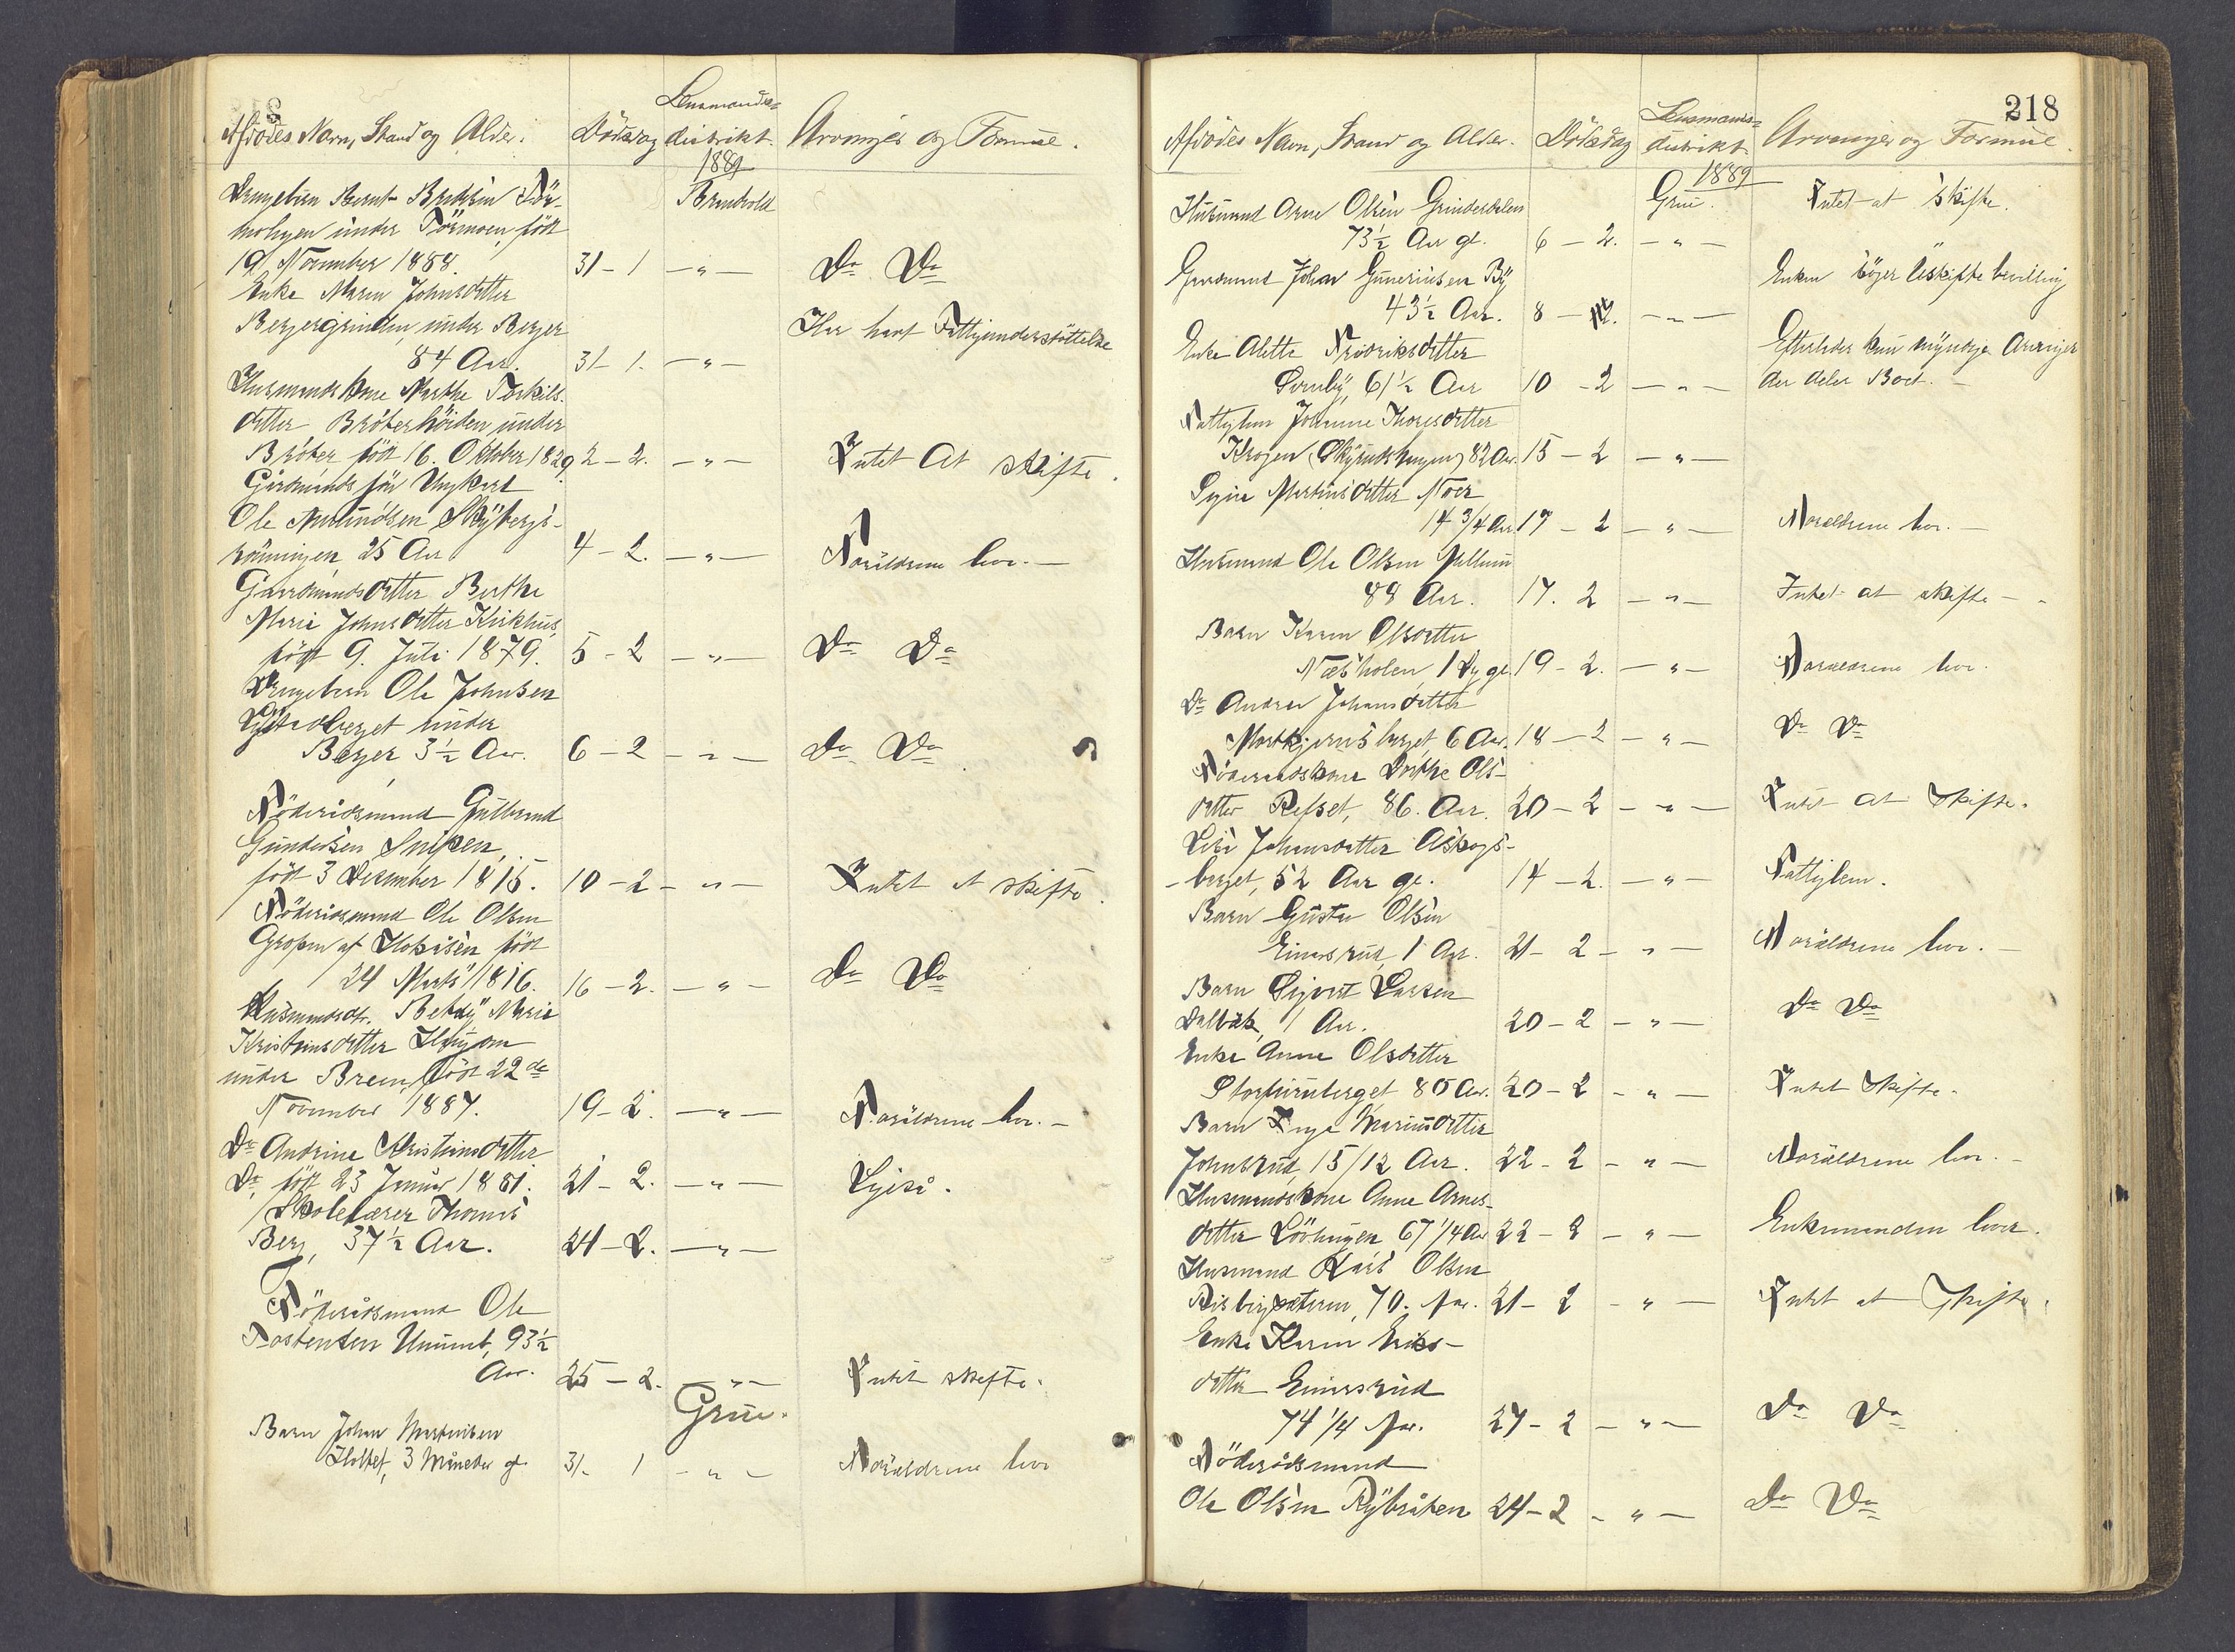 Lensmands-
Afdödes Navn, Stand og Alder. Dödsdag distrikt. Arvinger og Formue.
1889
Drengebarn Bernt Bredesen
Brandvold
under Törmoen, födt
19 November 1888. 31-1 -"- Do Do
Enke Maren Johnsdatter
Bergergrinden, under Berger
Har havt Fattigunderstöttelse
84 Aar. 31-1. -"-
Husmandskone Marthe Torkils-
datter Bröterhöiden under
Bröter födt 16. Oktober 1829. 2-2. -"- Intet at skifte.
Gaardmands sön Ungkarl
Ole Amundsen Skybergs-
25 Aar 4-2. -"- Foräldrene lever.-
Gaardmandsdatter Berthe
Marie Johnsdatter Kirkhus,
födt 9. Juli 1879. 5-2 -"- Do Do
Drengebarn Ole Johnsen
under
Berger 3½ Aar. 6-2 -"- Do Do
Föderådsmand Gulbrand
Gundersen Snipen,
födt 3 Desember 1815. 10-2 -"- Intet at skifte.
Föderådsmand Ole Olsen
födt
24 Marts 1816. 16-2. -"- Do Do
Husmandsdtr. Betsy Marie
Kristiansdatter Haugom
under Breen, födt 22de
November 1887. 19-2. -"- Foräldrene lever.-
Do Andrine Kristiansdatter
Do, födt 23 Januar 1881. 21-2. -"- Ligeså.
Skolelærer Thomas
Berg, 37½ Aar. 24-2. -"-
Föderådsmand Ole
Tostensen 93½
Aar. 25-2. -"- Intet skifte.
Grue.
Barn Johan Martinsen
Holtet, 3 Måneder gl. 31-1 -"- Foräldrene lever
218
Lensmands-
Afdödes Navn, Stand og Alder. Dödsdag distrikt. Arvinger og Formue.
1889
Husmand Arne Olsen Grinderdalen Grue. Intet at skifte.
73½ Aar gl. 6-2. -"-
Gaardmand Johan Guneriusen By Enken söger Uskiftebevilling
43½ Aar. 8-2. -"-
Enke Alette Fredriksdatter Efterlader kun myndige Arvinger
Sernby, 61½ Aar 10-2 -"- der deler Boet.-
Fattiglem Johanne Thoresdatter
Krogen (Skyrudshagen) 82 Aar. 15-2 -"-
Signe Martinsdatter Noer
14 3/4 Aar. 17-2 -"- Foreldrene lever.-
Husmand Ole Olsen
88 Aar. 17. 2 -"- Intet at skifte-
Barn Karen Olsdatter
Næsholen, 1 Dg gl. 19-2. -"- Foraldrene lever.
Do Andrea Johansdatter
6 Aar. 18-2 -"- Do Do
Föderaadskone Dorthe Ols-
datter Refset, 86. Aar. 20-2 -"- Intet at skifte.
Lise Johansdatter Askogs-
berget, 52 Aar gl. 14-2. -"- Fattiglem.
Barn Gustav Olsen
Einarsrud, 1 Aar. 21-2 -"- Foräldrene lever.-
Barn Sigvart Larsen
Dalbäk, 1 Aar. 20-2 -"- Do Do
Enke Anne Olsdatter
Storfuruberget 80 Aar. 20-2 -"- Intet skifte.
Barn Inga Mariusdatter
Johnsrud, 15/12 Aar. 22-2 -"- Foräldrene lever.-
Husmandskone Anne Arnes-
datter Lövhaugen 67 1/4 Aar 22-2 -"- Enkemanden lever.
Husmand Lars Olsen
Risbergsæteren, 70. Aar. 21-2 -"- Intet at skifte.
Enke Karen Eriks-
datter Einarsrud
74 1/4 Aar. 27-2 -"- Do Do
Föderådsmand
Ole Olsen Rybråten 24-2 -"- Do Do